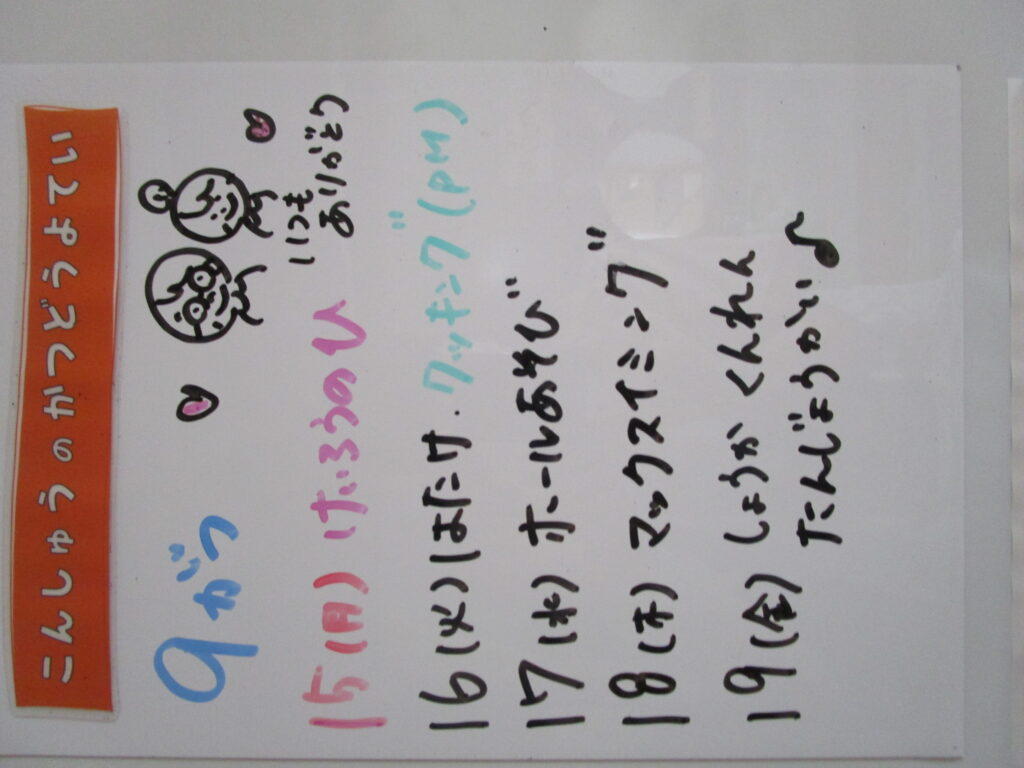 こんしゅうのかつどうよてい
9がつ
いつも
ありがとう
15(月) けいろうのひ
16(火) はたけ.クッキング(PM)
17(水) ホールあそび
18(木) マックスイミング
19(金) しょうかくんれん
たんじょうかい♪